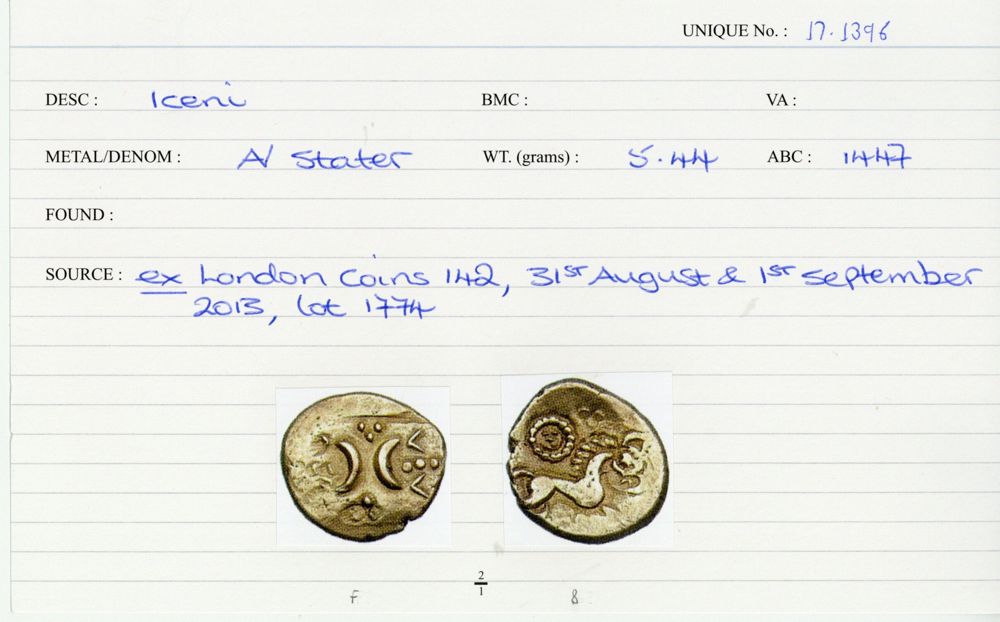 UNIQUE No. : 17.1396
DESC : Iceni BMC : VA :
METAL/DENOM : A/ Stater WT. (grams) : 5.44 ABC : 1447
FOUND :
SOURCE : ex London Coins 142, 31st August & 1st September
2013, lot 1774
2
1
F 8